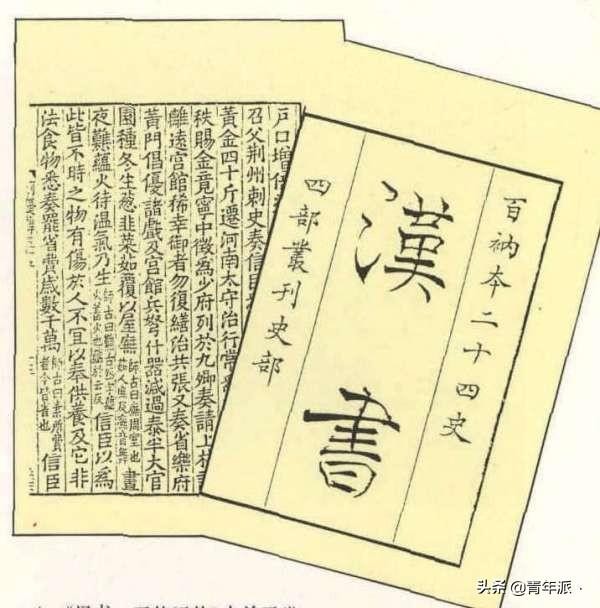 百衲本二十四史
漢書
四部叢刊史部
戶口增倍
召父荆州刺史奏信臣
黃金四十斤遷河南太守治行常
秩賜金竟寧中徵爲少府列於九卿奏請上林
離遠宮館稀幸御者勿復繕治共張又奏省樂府
黃門倡優諸戲及宮館兵弩什器減過泰半太官
園種冬生葱韭菜茹覆以屋廡師古曰廡周室也晝
夜難蘊火待溫氣乃生信臣以爲
此皆不時之物有傷於人不宜以奉供養及它非
法食物悉奏罷省費歲數千萬師古曰素所費者今皆省也信臣
头条@青年派